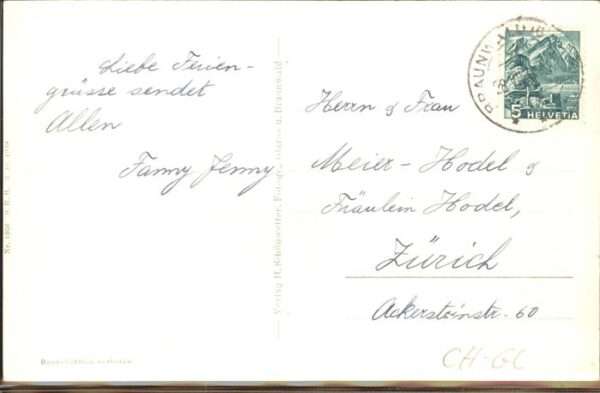 Liebe Ferien-
grüsse sendet
Allen
Fanny Jenny
Verlag H. Schönwetter, Photogr., Glarus u. Braunwald
BRAUNWALD
5
HELVETIA
Herrn & Frau
Meier - Hodel &
Fräulein Hodel,
Zürich
Ackersteinstr. 60
CH-GL